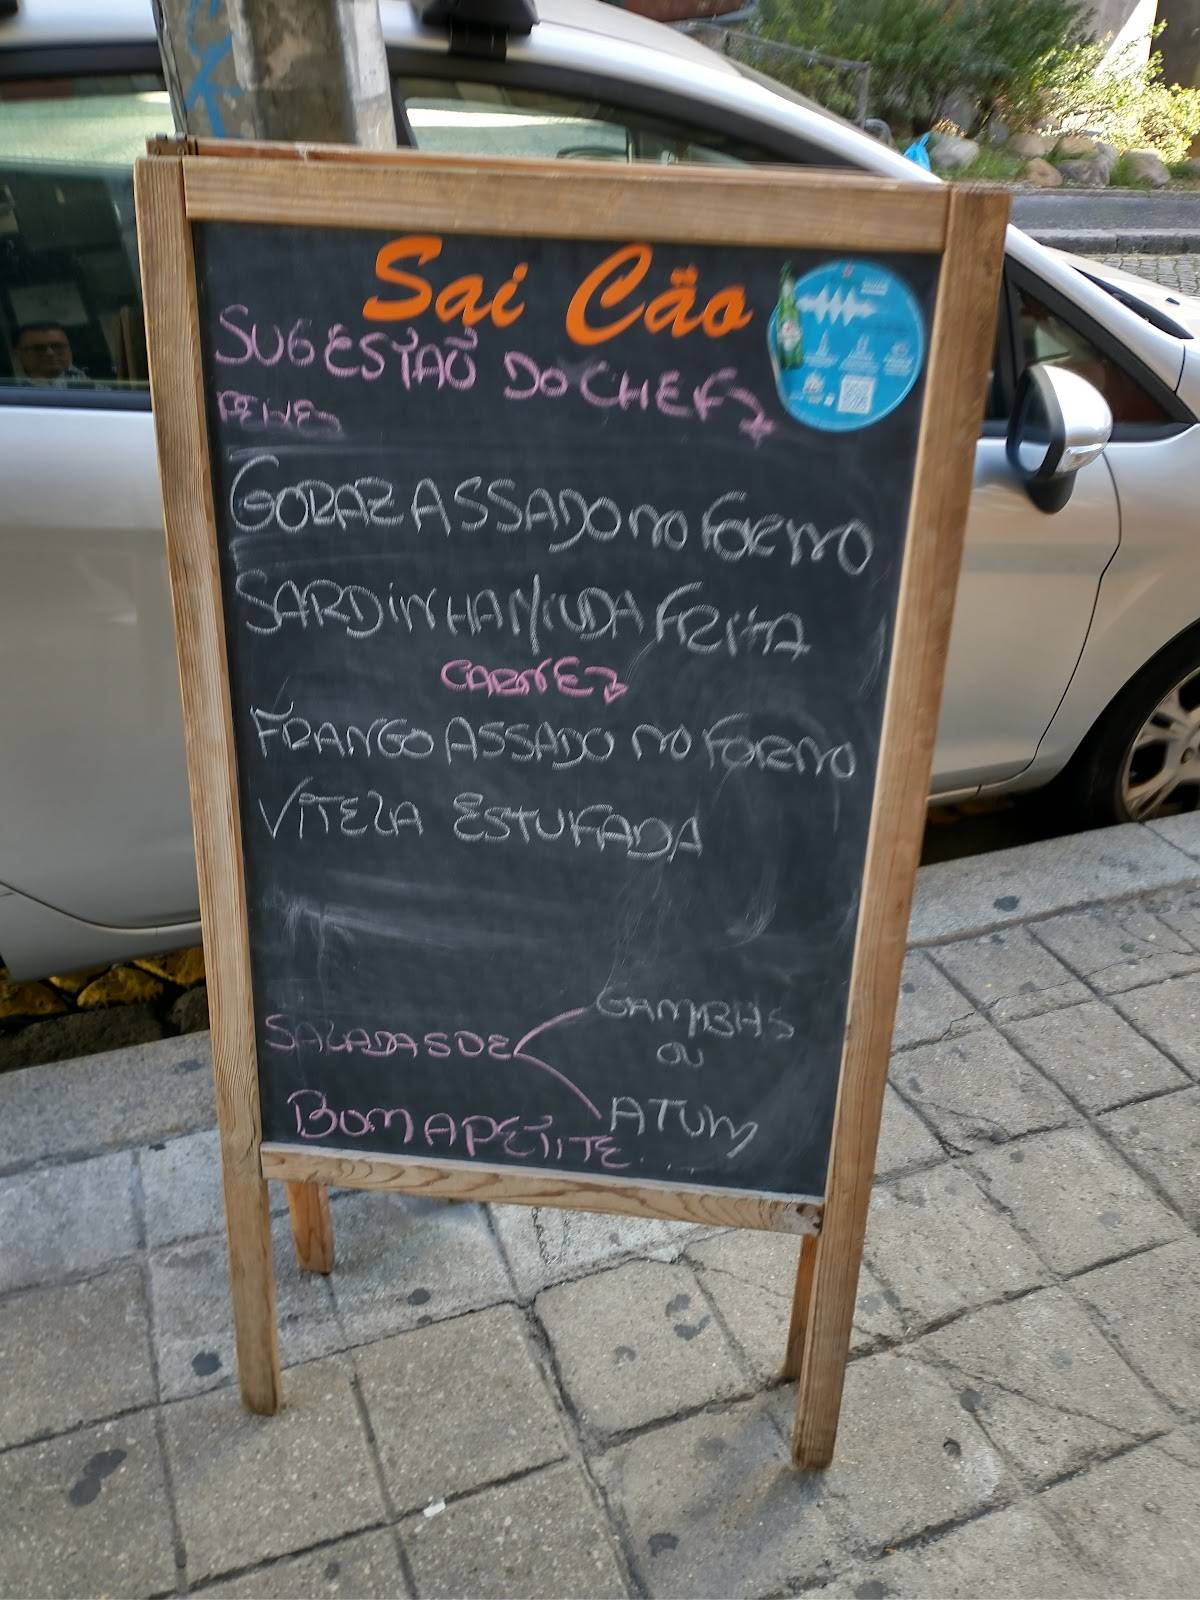 Sai Cão
SUGESTAÕ DO CHEF
PEIXE
GORAZ ASSADO NO FORNO
SARDINHA MIUDA FRITA
CARNE
FRANGO ASSADO NO FORNO
VITELA ESTUFADA
SALADAS DE
GAMBAS
OU
ATUM
BOM APETITE...